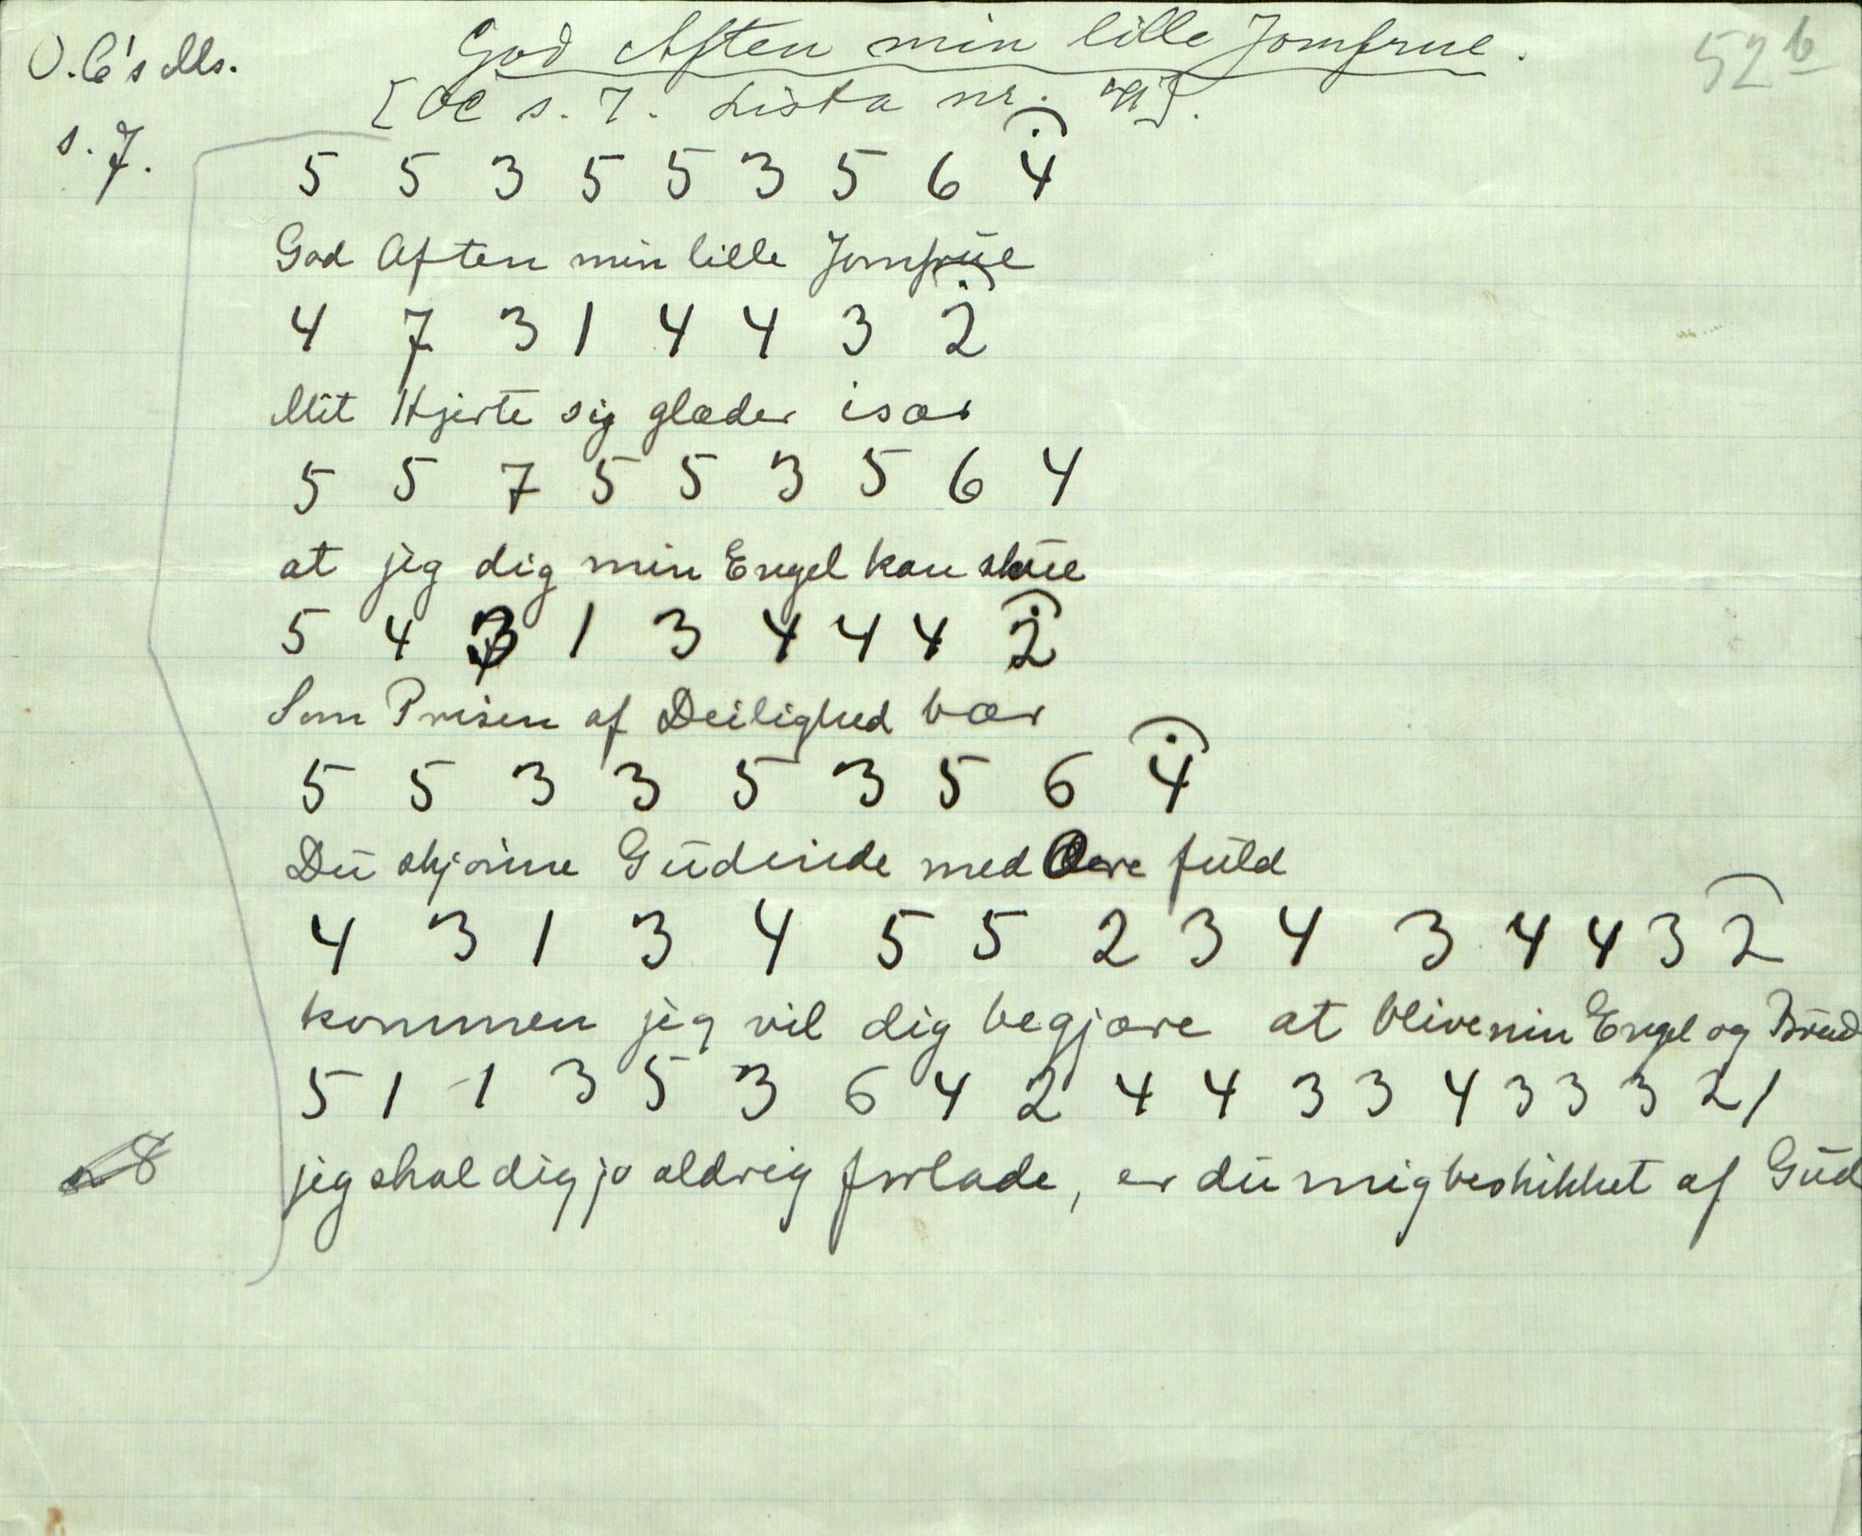 God Aften min lille Jomfrue.
52 b
O.C's Ms.
[OC s. 7. Lista nr.
s. 7.
5 5 3 5 5 3 5 6 4
God Aften min lille Jomfrue
4 7 3 1 4 4 3 2
Mit Hjerte sig glæder især
5 5 7 5 5 3 5 6 4
at jeg dig min Engel kan skue
5 4 3 1 3 4 4 4 2
Som Prisen af Deilighed bær
5 5 3 3 5 3 5 6 4
Du skjønne Gudinde med Ære fuld
4 3 1 3 4 5 5 2 3 4 3 4 4 3 2
kommen jeg vil dig begjære at blive min Engel og Brud
5 1 1 3 5 3 6 4 2 4 4 3 3 4 3 3 3 2 1
jeg skal dig jo aldrig forlade, er du mig beskikket af Gud
8